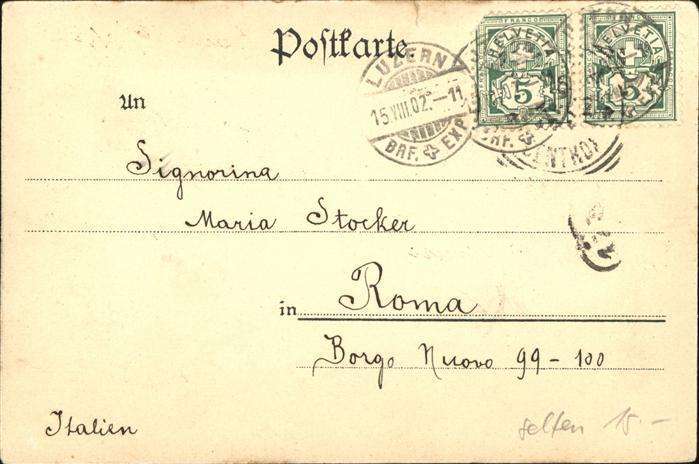 Postkarte
FRANCO FRANCO
HELVETIA HELVETIA
5 5
LUZERN
15.VIII.02.–11
BRF. EXP.
BRF.
An
Signorina
Maria Stocker
in Roma
Borgo Nuovo 99-100
Italien
selten 15.-